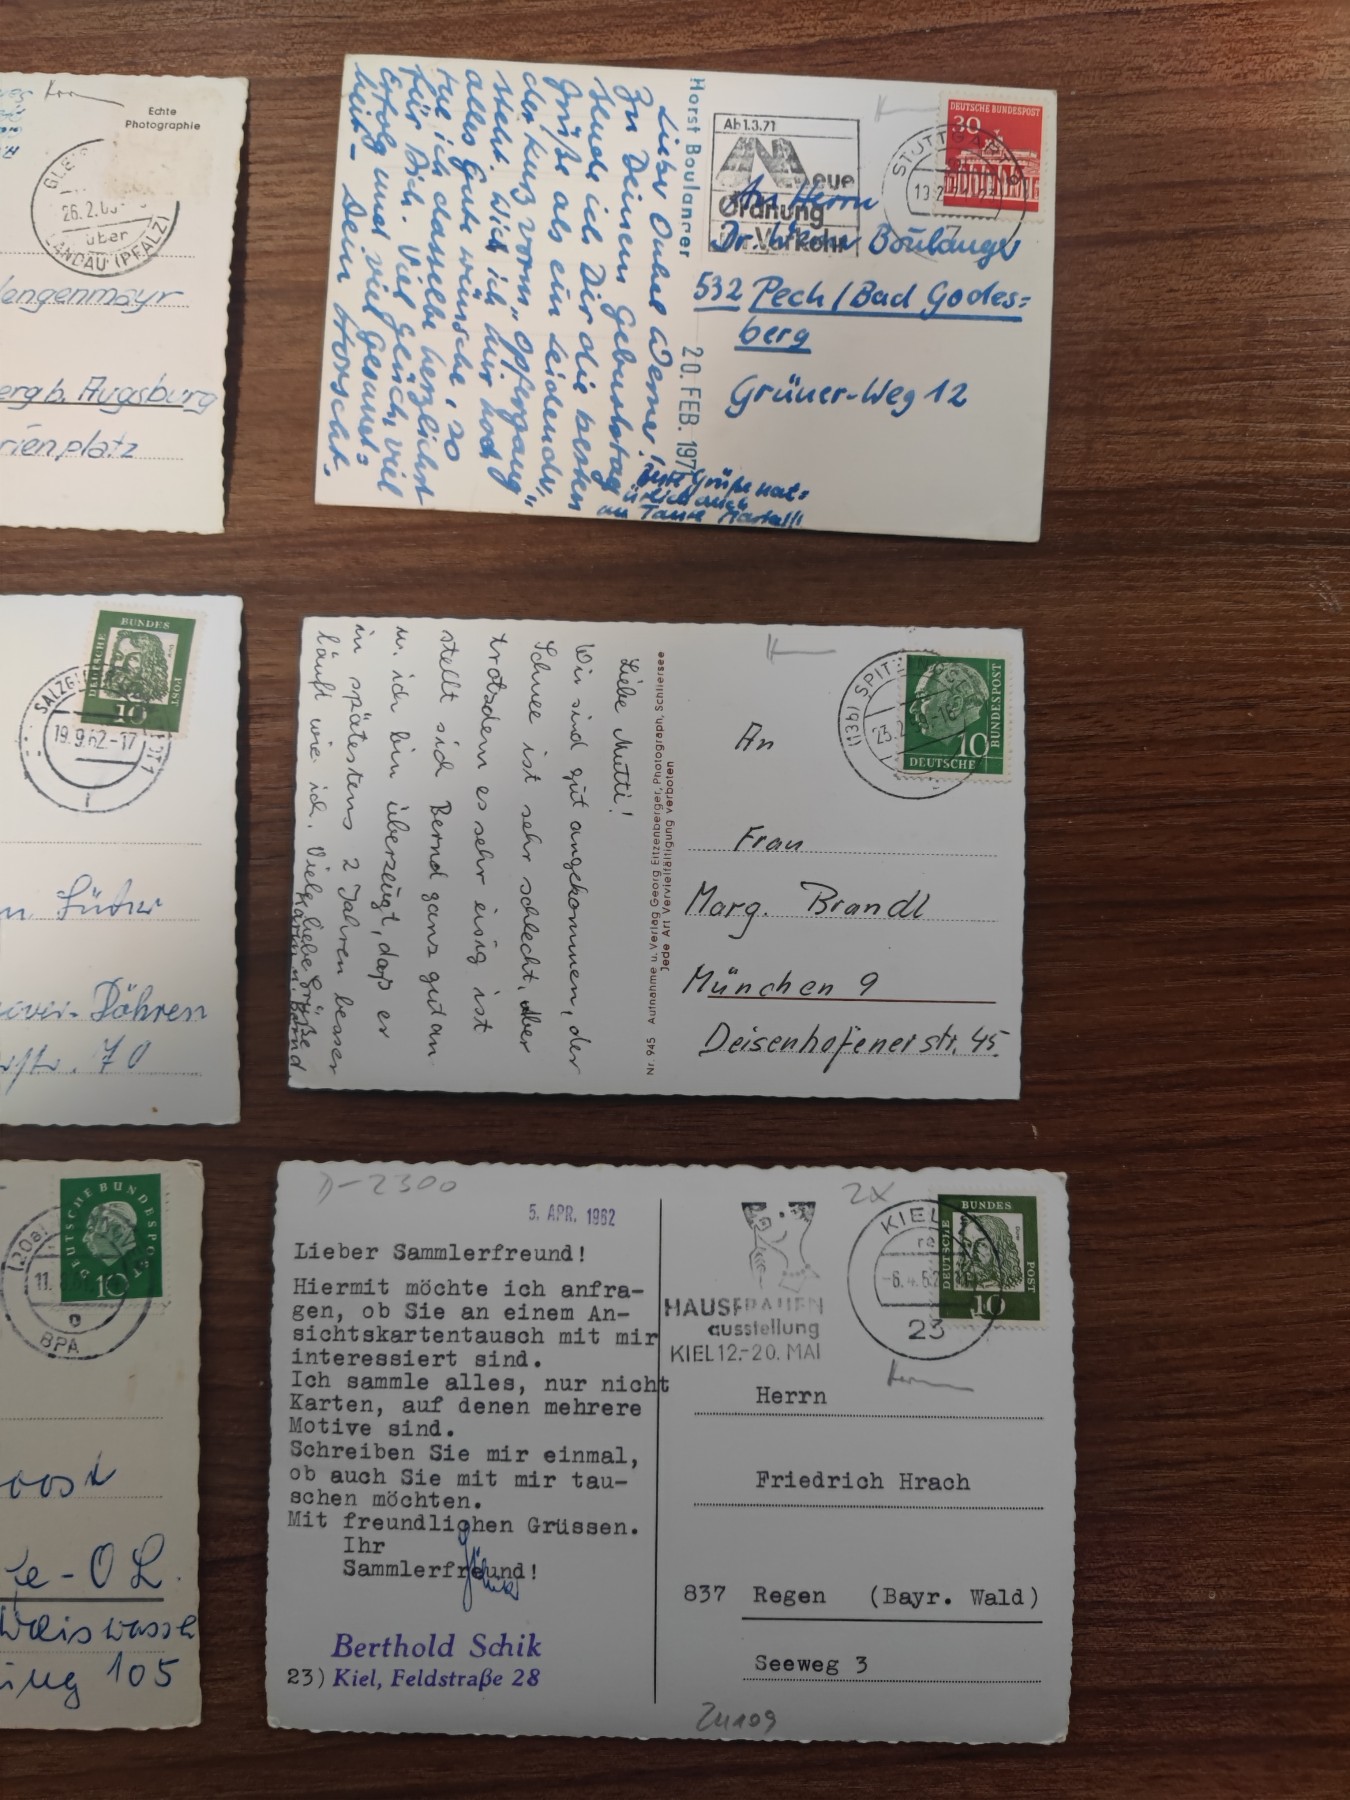 Echte
Photographie
26.2.6
über
LANDAU (PFALZ)
Augsburg
DEUTSCHE BUNDESPOST
30
STUTTGART
Ab 1.3.71
Neue
Ordnung
im Verkehr
An Herrn
Dr. Boulanger
532 Pech / Bad Godes=
berg
Grüner-Weg 12
Horst Boulanger
20. FEB. 197
Lieber Onkel Werner!
Zu Deinem Geburtstag
sende ich Dir die besten
Grüße als ein Leidender,
der kurz vorm „Opfergang“
steht. Da ich Dir noch
alles Gute wünsche, so
tue ich dasselbe herzlichst
für Dich. Viel Glück, viel
Erfolg und viel Gesund=
heit - Dein Horscht.
Grüße nat=
ürlich auch
an Tante
BUNDES
POST
DEUTSCHE
10
SALZGI
19.9.62-17
Döhren
70
DEUTSCHE
BUNDESPOST
10
(13b) SPITZINGSEE
23.2
Liebe Mutti!
Wir sind gut angekommen, der
Schnee ist sehr schlecht, aber
trotzdem es sehr eisig ist
stellt sich Bernd ganz gut an
u. ich bin überzeugt, daß er
in spätestens 2 Jahren besser
läuft wie ich. Viele liebe Grüße
Karin u. Bernd
Nr. 945 Aufnahme u. Verlag Georg Eitzenberger, Photograph, Schliersee
Jede Art Vervielfältigung verboten
An
Frau
Marg. Brandl
München 9
Deisenhofenerstr. 45
DEUTSCHE BUNDESPOST
10
(20a)
11.
BPA
Weiswasser
105
D-2300
2x
5. APR. 1962
Lieber Sammlerfreund!
Hiermit möchte ich anfra-
gen, ob Sie an einem An-
sichtskartentausch mit mir
interessiert sind.
Ich sammle alles, nur nicht
Karten, auf denen mehrere
Motive sind.
Schreiben Sie mir einmal,
ob auch Sie mit mir tau-
schen möchten.
Mit freundlichen Grüssen.
Ihr
Sammlerfreund!
Berthold Schik
23) Kiel, Feldstraße 28
HAUSFRAUEN
ausstellung
KIEL 12.-20. MAI
KIEL
-6.4.62
23
BUNDES
POST
DEUTSCHE
10
Herrn
Friedrich Hrach
837 Regen (Bayr. Wald)
Seeweg 3